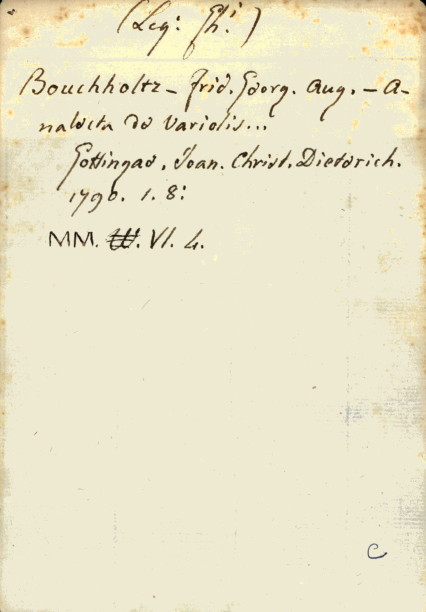 (Leg: Gh:)
Bouchholtz - Frid. Georg. Aug. - A-
nalecta de Variolis...
Gottingae. Joan. Christ. Dieterich.
1790. 1. 8:
MM. VI. 4.
C